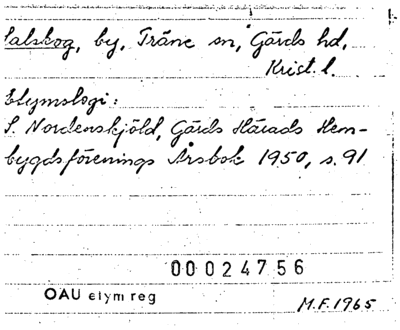 Salskog, by, Träne sn, Gärds hd,
Krist. l.
Etymologi:
S. Nordenskjöld, Gärds Härads Hem-
bygdsförenings Årsbok 1950, s. 91
00024756
OAU etym reg
M.F. 1965